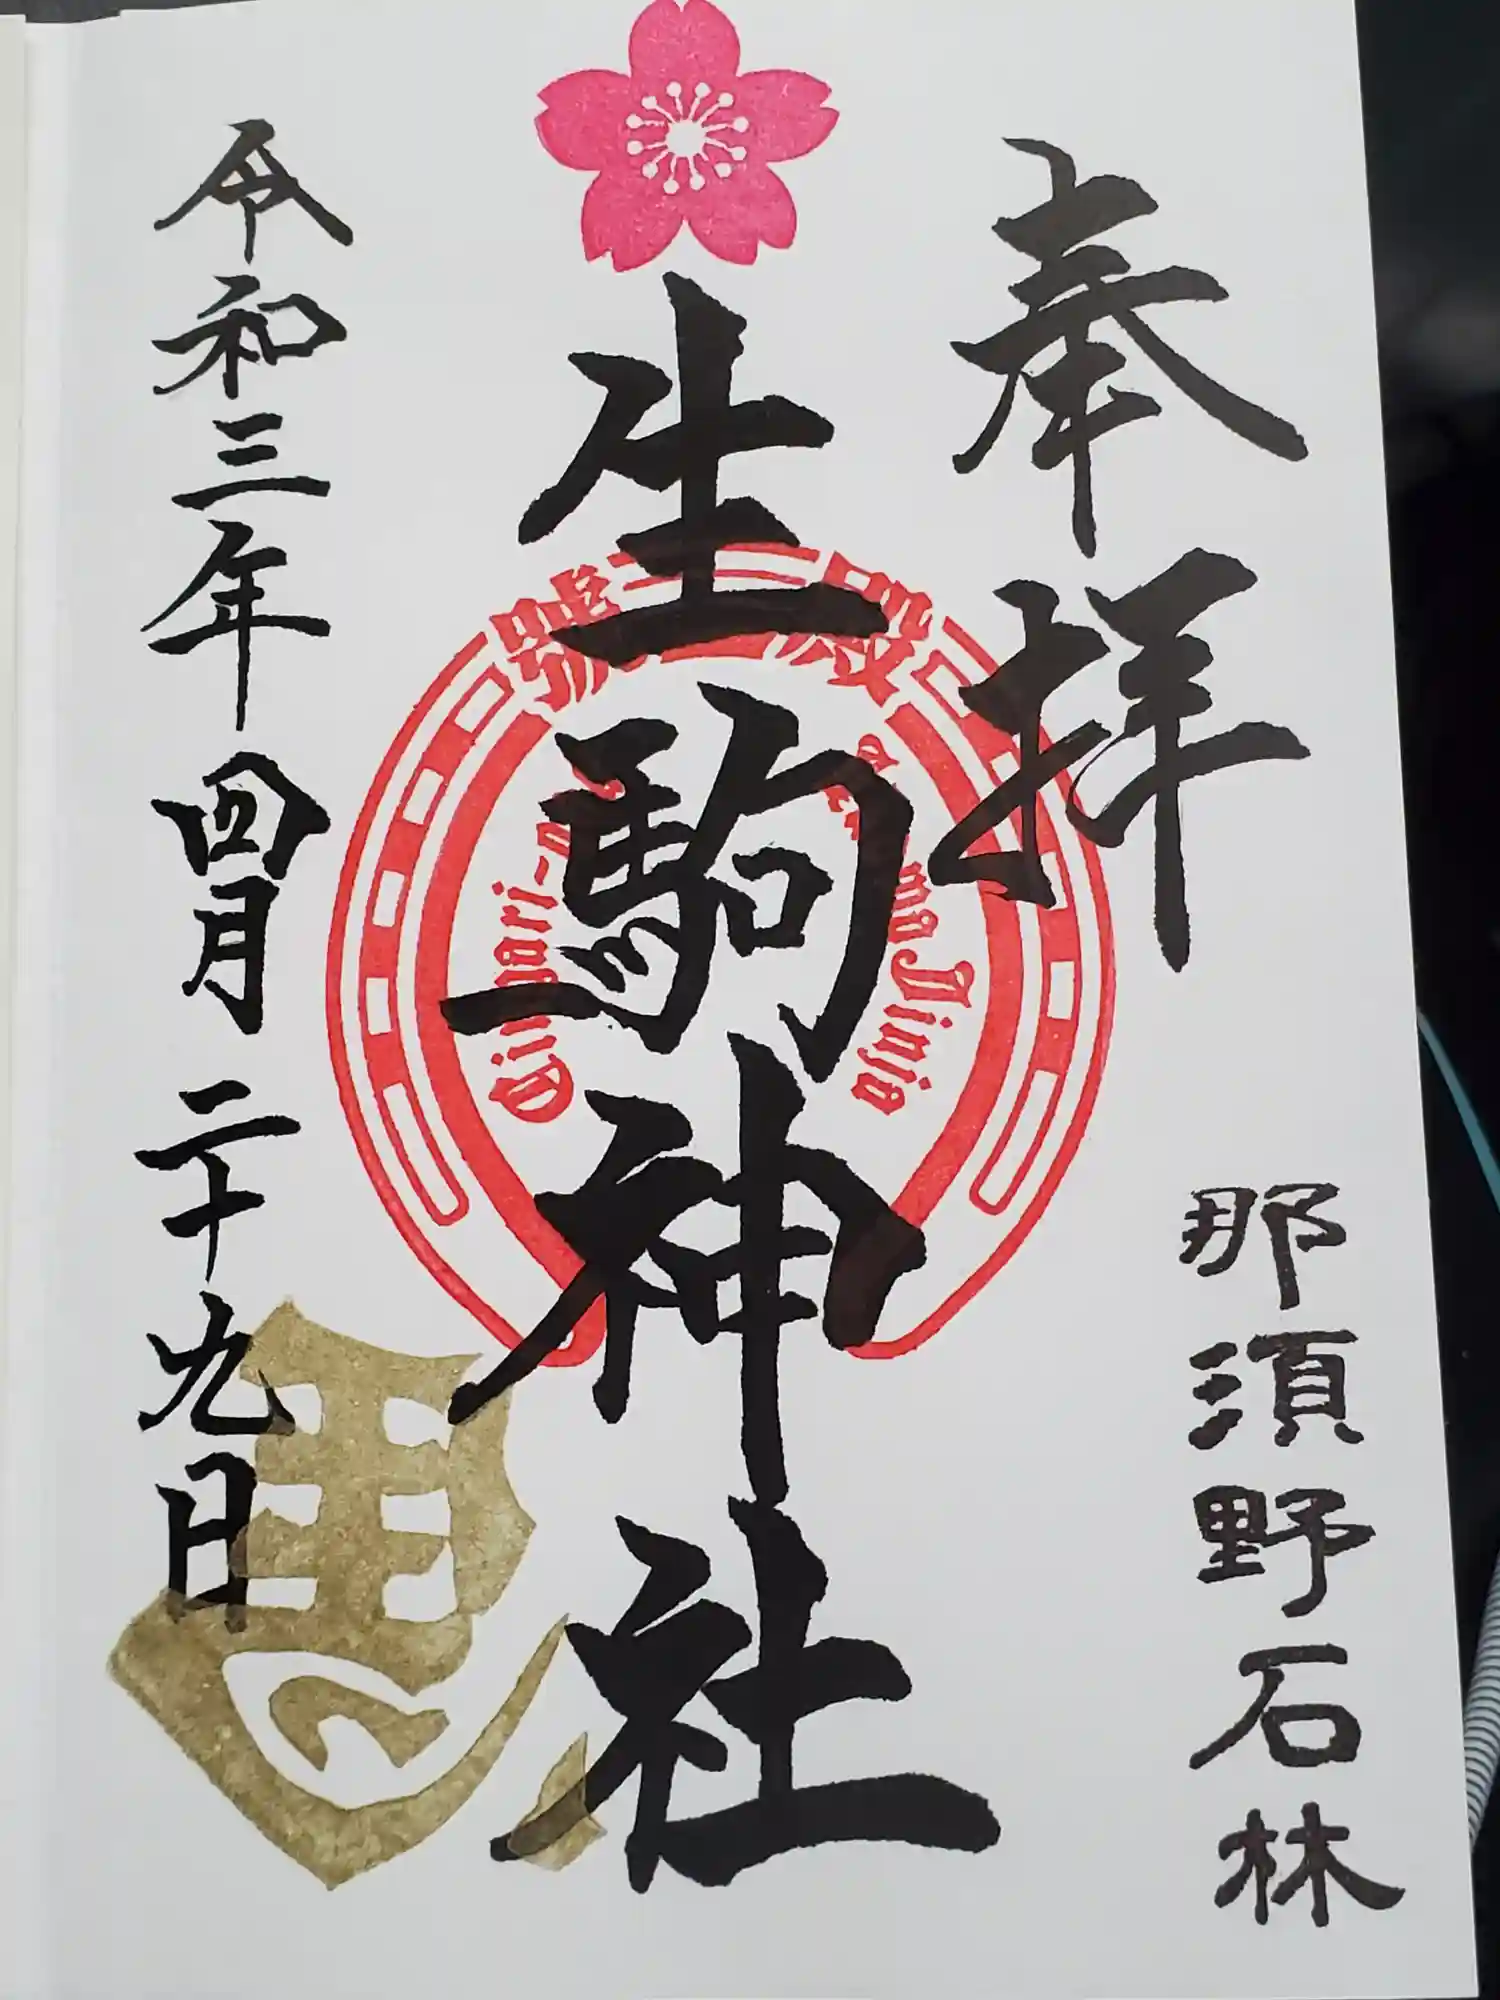 奉拝
那須野石林
生駒神社
令和三年四月二十九日
殿號
Jinja